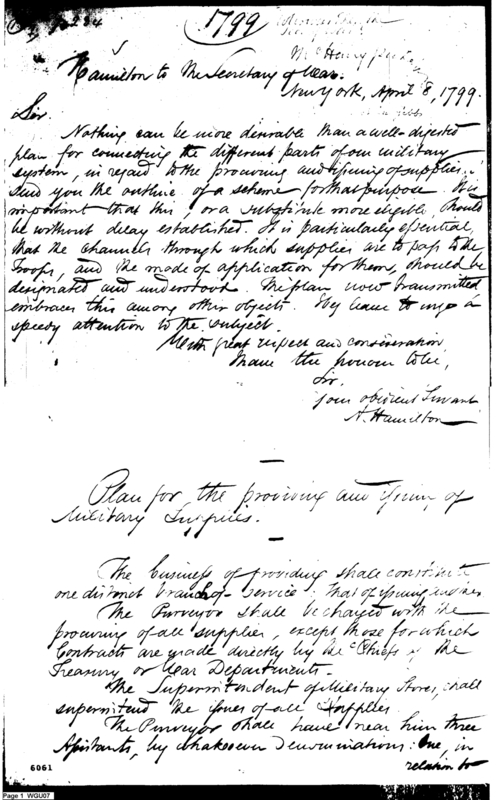 1799
McHenry
Hamilton to the Secretary of War.
New York, April 8, 1799.
Sir.
Nothing can be more desirable than a well digested
plan for connecting the different parts of our military
system, in regard to the procuring and issuing of supplies. I
send you the outline of a scheme for that purpose. It is
important that this, or a substitute more eligible, should
be without delay established. It is particularly essential,
that the channels through which supplies are to pass to the
Troops, and the mode of application for them, should be
designated and understood. The plan now transmitted
embraces this among other objects. I beg leave to urge a
speedy attention to the subject.
With great respect and consideration
I have the honour to be,
Sir,
your obedient Servant
A. Hamilton
Plan for the providing and issuing of
Military Supplies.
The business of providing shall constitute
one distinct branch of service: that of issuing another
The Purveyor shall be charged with the
procuring of all supplies, except those for which
Contracts are made directly by the Chiefs of the
Treasury or War Departments.
The Superintendent of Military Stores, shall
superintend the issues of all supplies.
The Purveyor shall have near him three
Assistants, by whatsoever denominations: One, in
relation to
6061
Page 1 WGU07